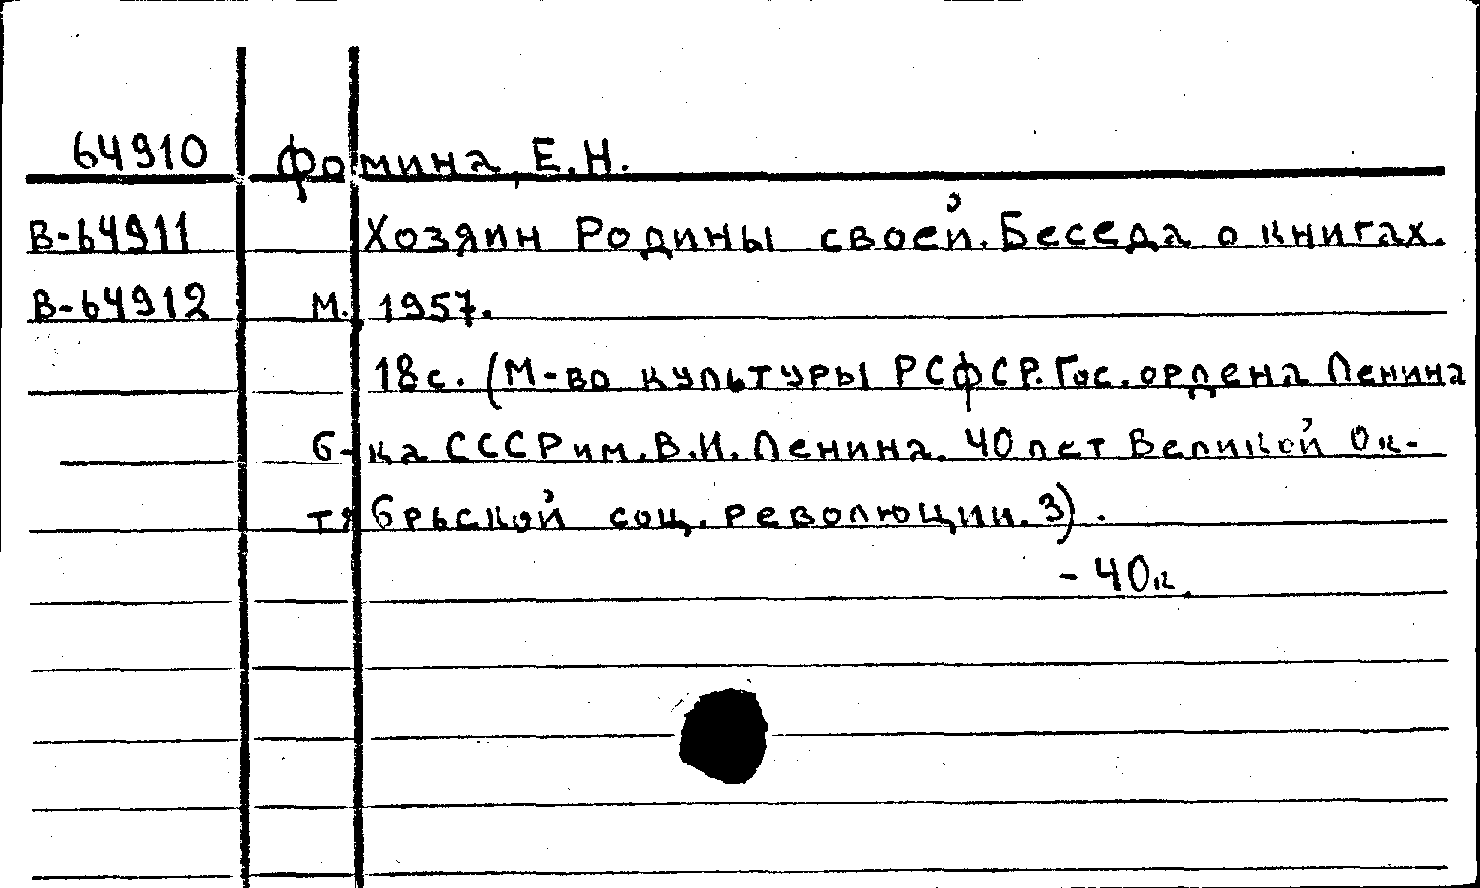 64910 Фомина, Е.Н.
В-64911 Хозяин Родины своей. Беседа о книгах.
В-64912 М. 1957.
18с. (М-во культуры РСФСР. Гос. ордена Ленина
б-ка СССР им. В.И. Ленина. 40 лет Великой Ок-
тябрьской соц. революции. 3).
- 40к.